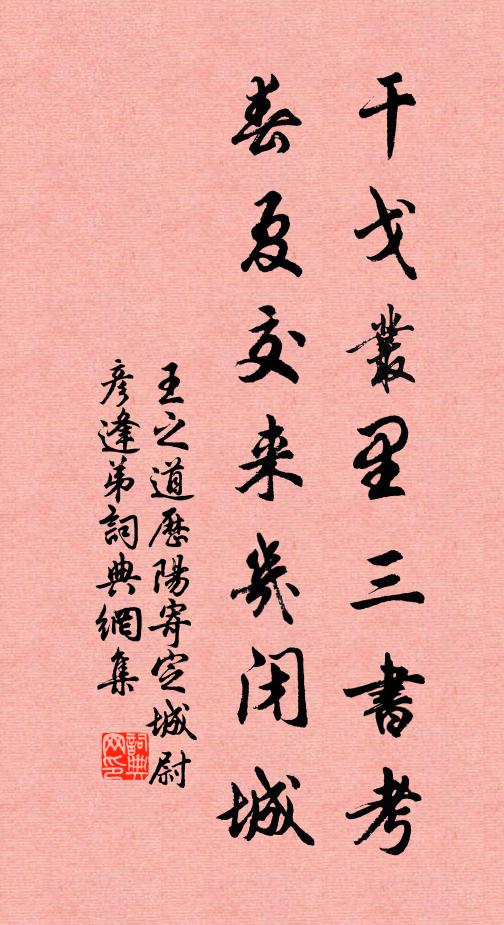 干戈叢里三書考
春夏交来幾闭城
王之道歷陽寄定城尉
彦逢弟詞典網集
詞典网印